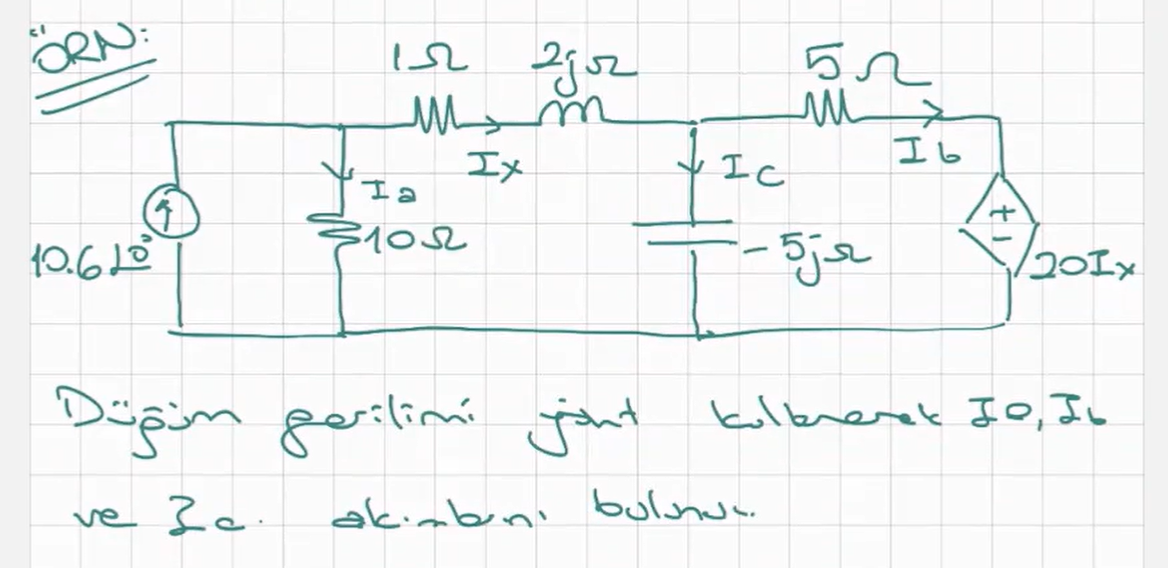 ÖRN:
1Ω 2jΩ 5Ω
Ix Ib
Ia Ic
10.6∠0° 10Ω -5jΩ + - 20Ix
Düğüm gerilimi yönt kullanarak Ia, Ib
ve Ic akımlarını bulunuz.